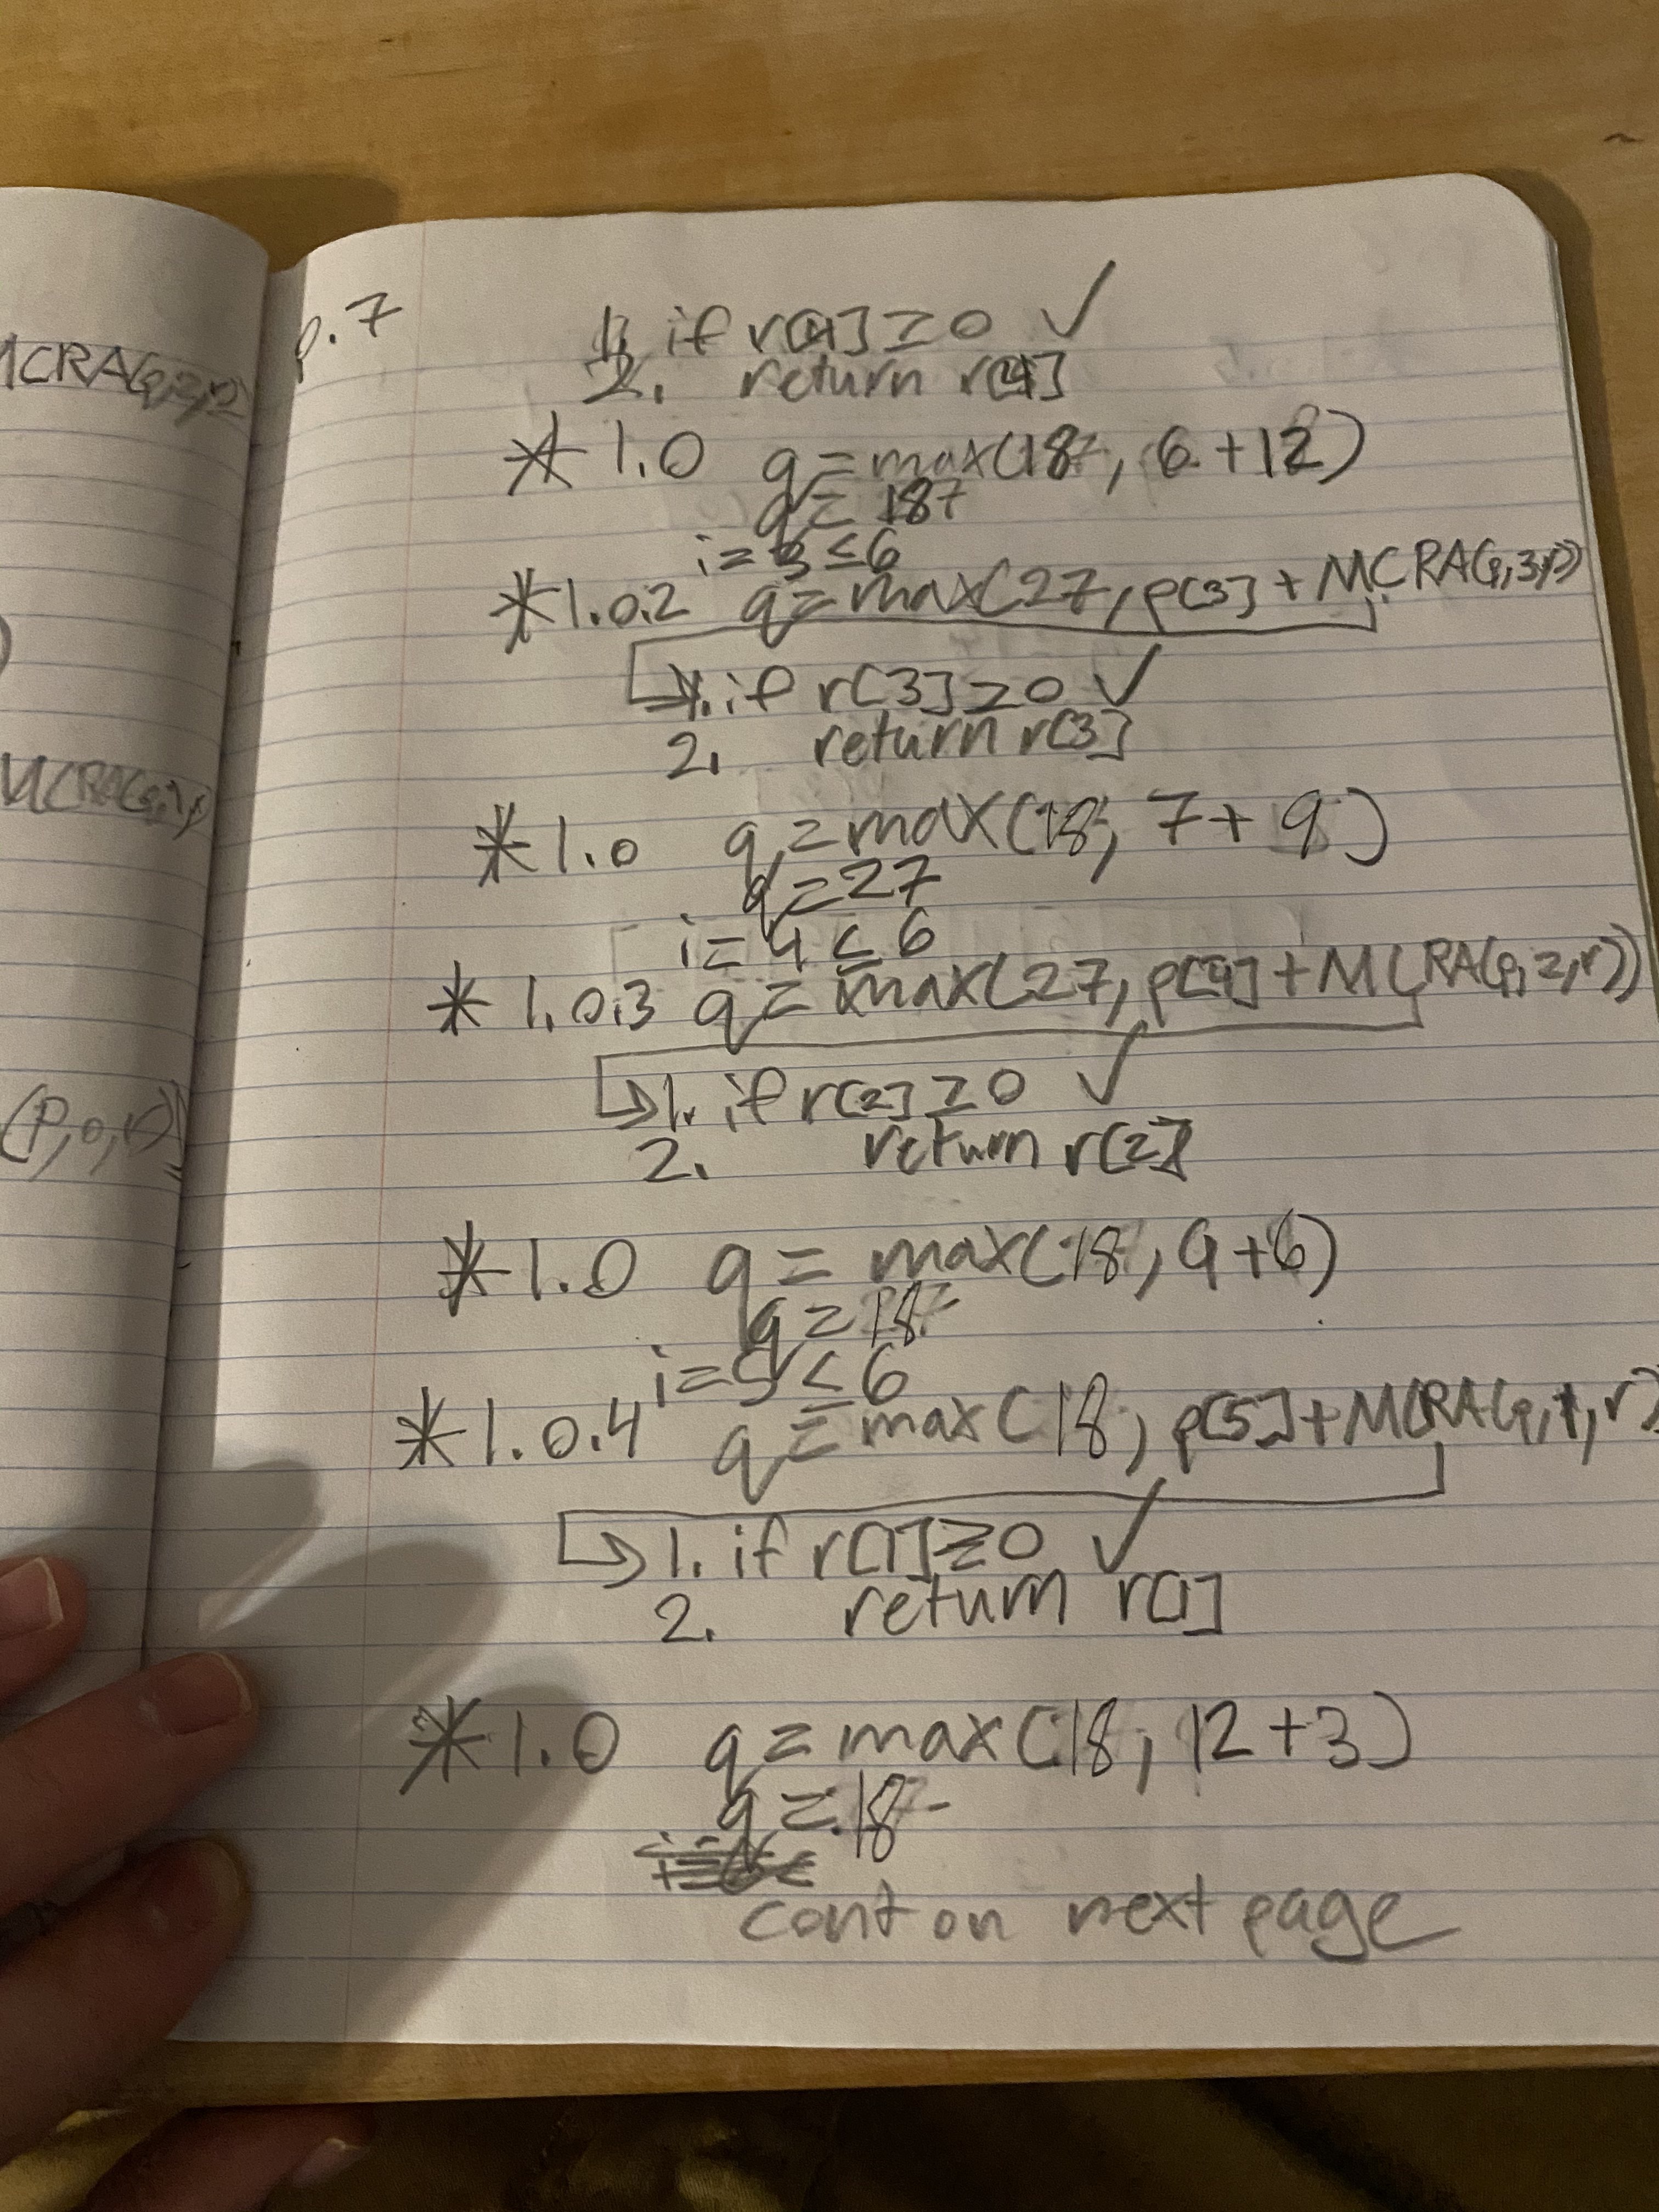 p.7
1. if r[4] ≥ 0 ✓
2. return r[4]
* 1.0 q = max(18, 6 + 12)
q = 18
i = 3 ≤ 6
* 1.0.2 q = max(27, p[3] + MCRA(p,3,r))
1. if r[3] ≥ 0 ✓
2. return r[3]
* 1.0 q = max(18, 7 + 9)
q = 27
i = 4 ≤ 6
* 1.0.3 q = max(27, p[4] + MCRA(p,2,r))
1. if r[2] ≥ 0 ✓
2. return r[2]
* 1.0 q = max(18, 9 + 6)
q = 18
i = 5 ≤ 6
* 1.0.4 q = max(18, p[5] + MCRA(p,1,r)
1. if r[1] ≥ 0 ✓
2. return r[1]
* 1.0 q = max(18, 12 + 3)
q = 18
cont on next page
MCRA(p,2,r)
MCRA(p,1,r)
(p,0,r))